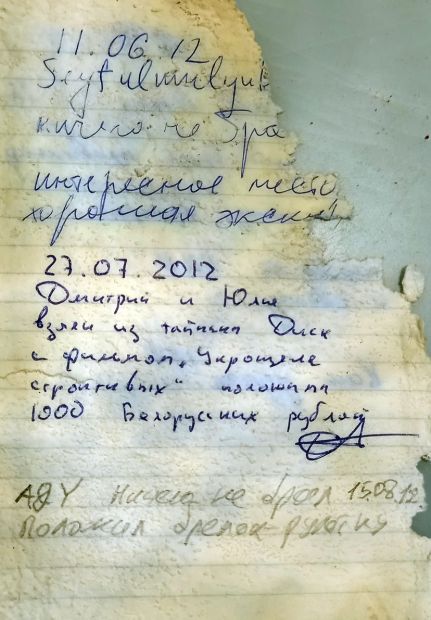 11.06.12
Seytulmulyuk
ничего не бра
интересное место
хорошая экску
27.07.2012
Дмитрий и Юлия
взяли из тайника Диск
с фильмом „Укрощение
строптивых“ положили
1000 Белорусских рублей
Ничего не брал 15.08.12
Положил брелок